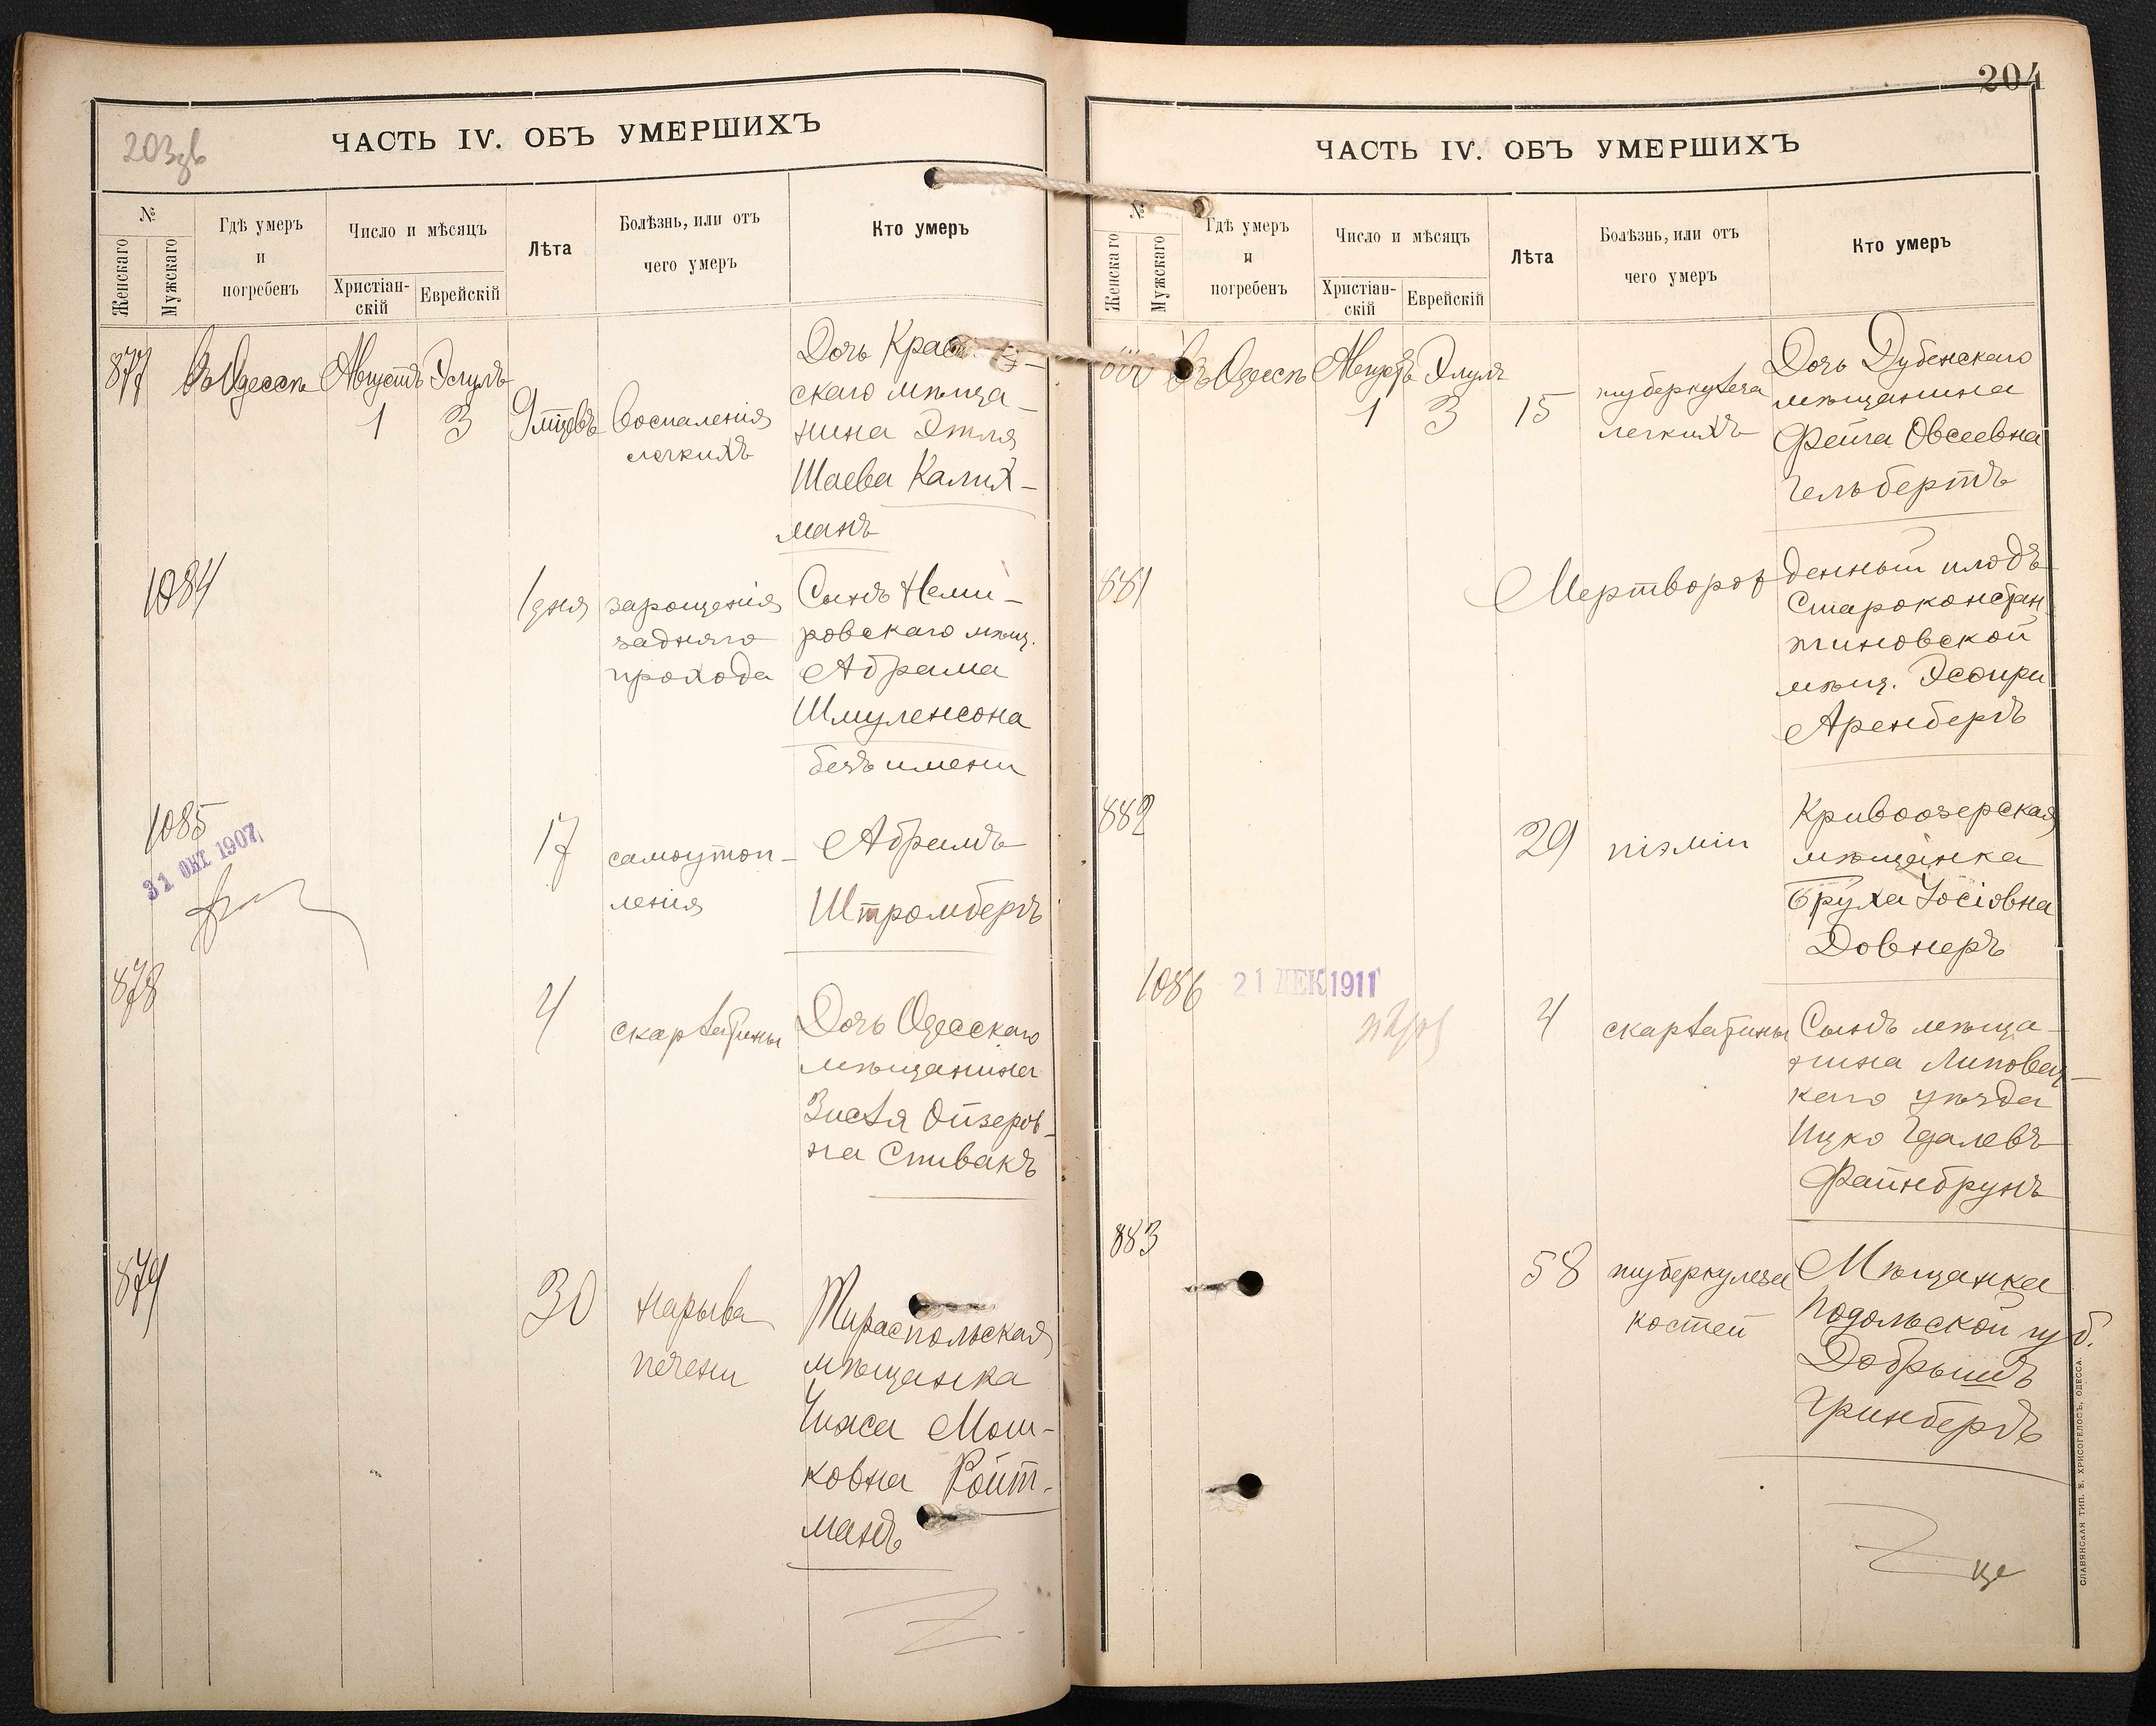 203зв
ЧАСТЬ IV. ОБЪ УМЕРШИХЪ
№
Женскаго
Мужскаго
Гдѣ умеръ
и
погребенъ
Число и мѣсяцъ
Христіан-
скій
Еврейскій
Лѣта
Болѣзнь, или отъ
чего умеръ
Кто умеръ
877
Въ Одессѣ
Августъ
1
3
9 мѣцевъ
Воспаленія
легкихъ
Дочь
скаго мѣща-
нина Этля
Шаева Калих-
манъ
1084
1 дня
зарощенія
задняго
прохода
Сынъ Неми-
ровскаго мѣщ.
Абрама
Шмуленсона
безъ имени
1085
31 ОКТ 1907
17
самоутоп-
ленія
Абрамъ
Штромбергъ
878
4
скарлатины
Дочь Одесскаго
мѣщанина
Зисля Ойзеров-
на Спивакъ
879
30
Нарыва
печени
Тираспольская
мѣщанка
Мош-
ковна Ройт-
манъ
204
ЧАСТЬ IV. ОБЪ УМЕРШИХЪ
№
Женскаго
Мужскаго
Гдѣ умеръ
и
погребенъ
Число и мѣсяцъ
Христіан-
скій
Еврейскій
Лѣта
Болѣзнь, или отъ
чего умеръ
Кто умеръ
Въ Одессѣ
Августъ
Элулъ
1
3
15
туберкулеза
легкихъ
Дочь Дубенскаго
мѣщанина
Фейга Овсеевна
Гельбертъ
881
Мертворож
денный плодъ
Староконстан
тиновской
мѣщ. Эсѳири
Аренбергъ
882
29
піэміи
Кривоозерская
мѣщанка
Бруха Іосіовна
Довнеръ
1086
21 ДЕК 1911
4
скарлатины
Сынъ мѣща-
нина Липовец-
каго уѣзда
Ицко Гдалевъ
Файнбрунъ
883
58
туберкулеза
костей
Мѣщанка
Подольской губ.
Добрышъ
Гринбергъ
СЛАВЯНСКАЯ ТИП. Е. ХРИСОГЕЛОСЪ, ОДЕССА.